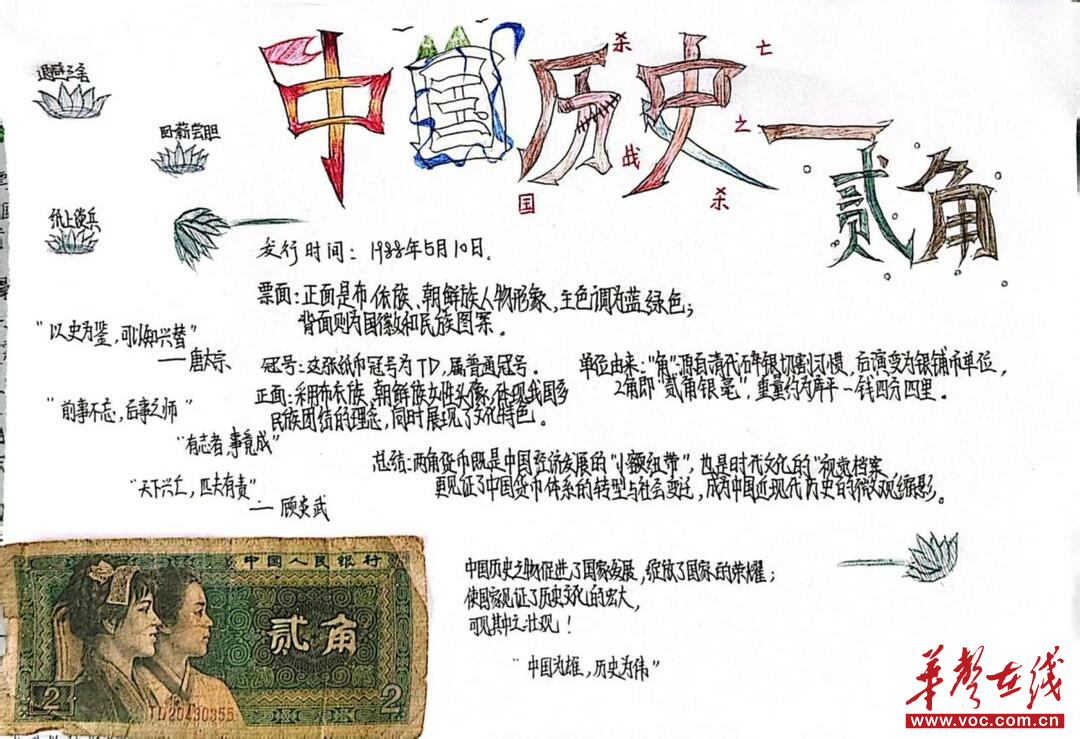 中国历史
杀
亡
之
战
国
杀
贰角
卧薪尝胆
纸上谈兵
发行时间：1988年5月10日.
票面：正面是布依族、朝鲜族人物形象，主色调为蓝绿色；
背面则为国徽和民族图案。
"以史为鉴，可以知兴替"
——唐太宗
冠号：这张纸币冠号为TD，属普通冠号。
正面：采用布衣族、朝鲜族女性头像，体现我国多
民族团结的理念，同时展现了文化特色。
单位由来："角"源自清代碎银切割习惯，后演变为银铺币单位，
2角即"贰角银毫"，重量约为库平一钱四分四厘。
"前事不忘，后事之师"
"有志者，事竟成"
"天下兴亡，匹夫有责"
——顾炎武
总结：两角货币既是中国经济发展的"小额纽带"，也是时代文化的"视觉档案
更见证了中国货币体系的转型与社会变迁，成为中国近现代历史的微观缩影。
中国历史之物促进了国家发展，绽放了国家的荣耀；
使国家见证了历史文化的宏大，
可见其中之壮观！
"中国为雄，历史为伟"
中国人民银行
贰角
2
TD20430355
2
华声在线
www.voc.com.cn